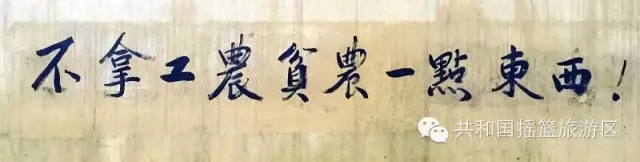 不拿工農貧農一點東西！
共和国摇篮旅游区